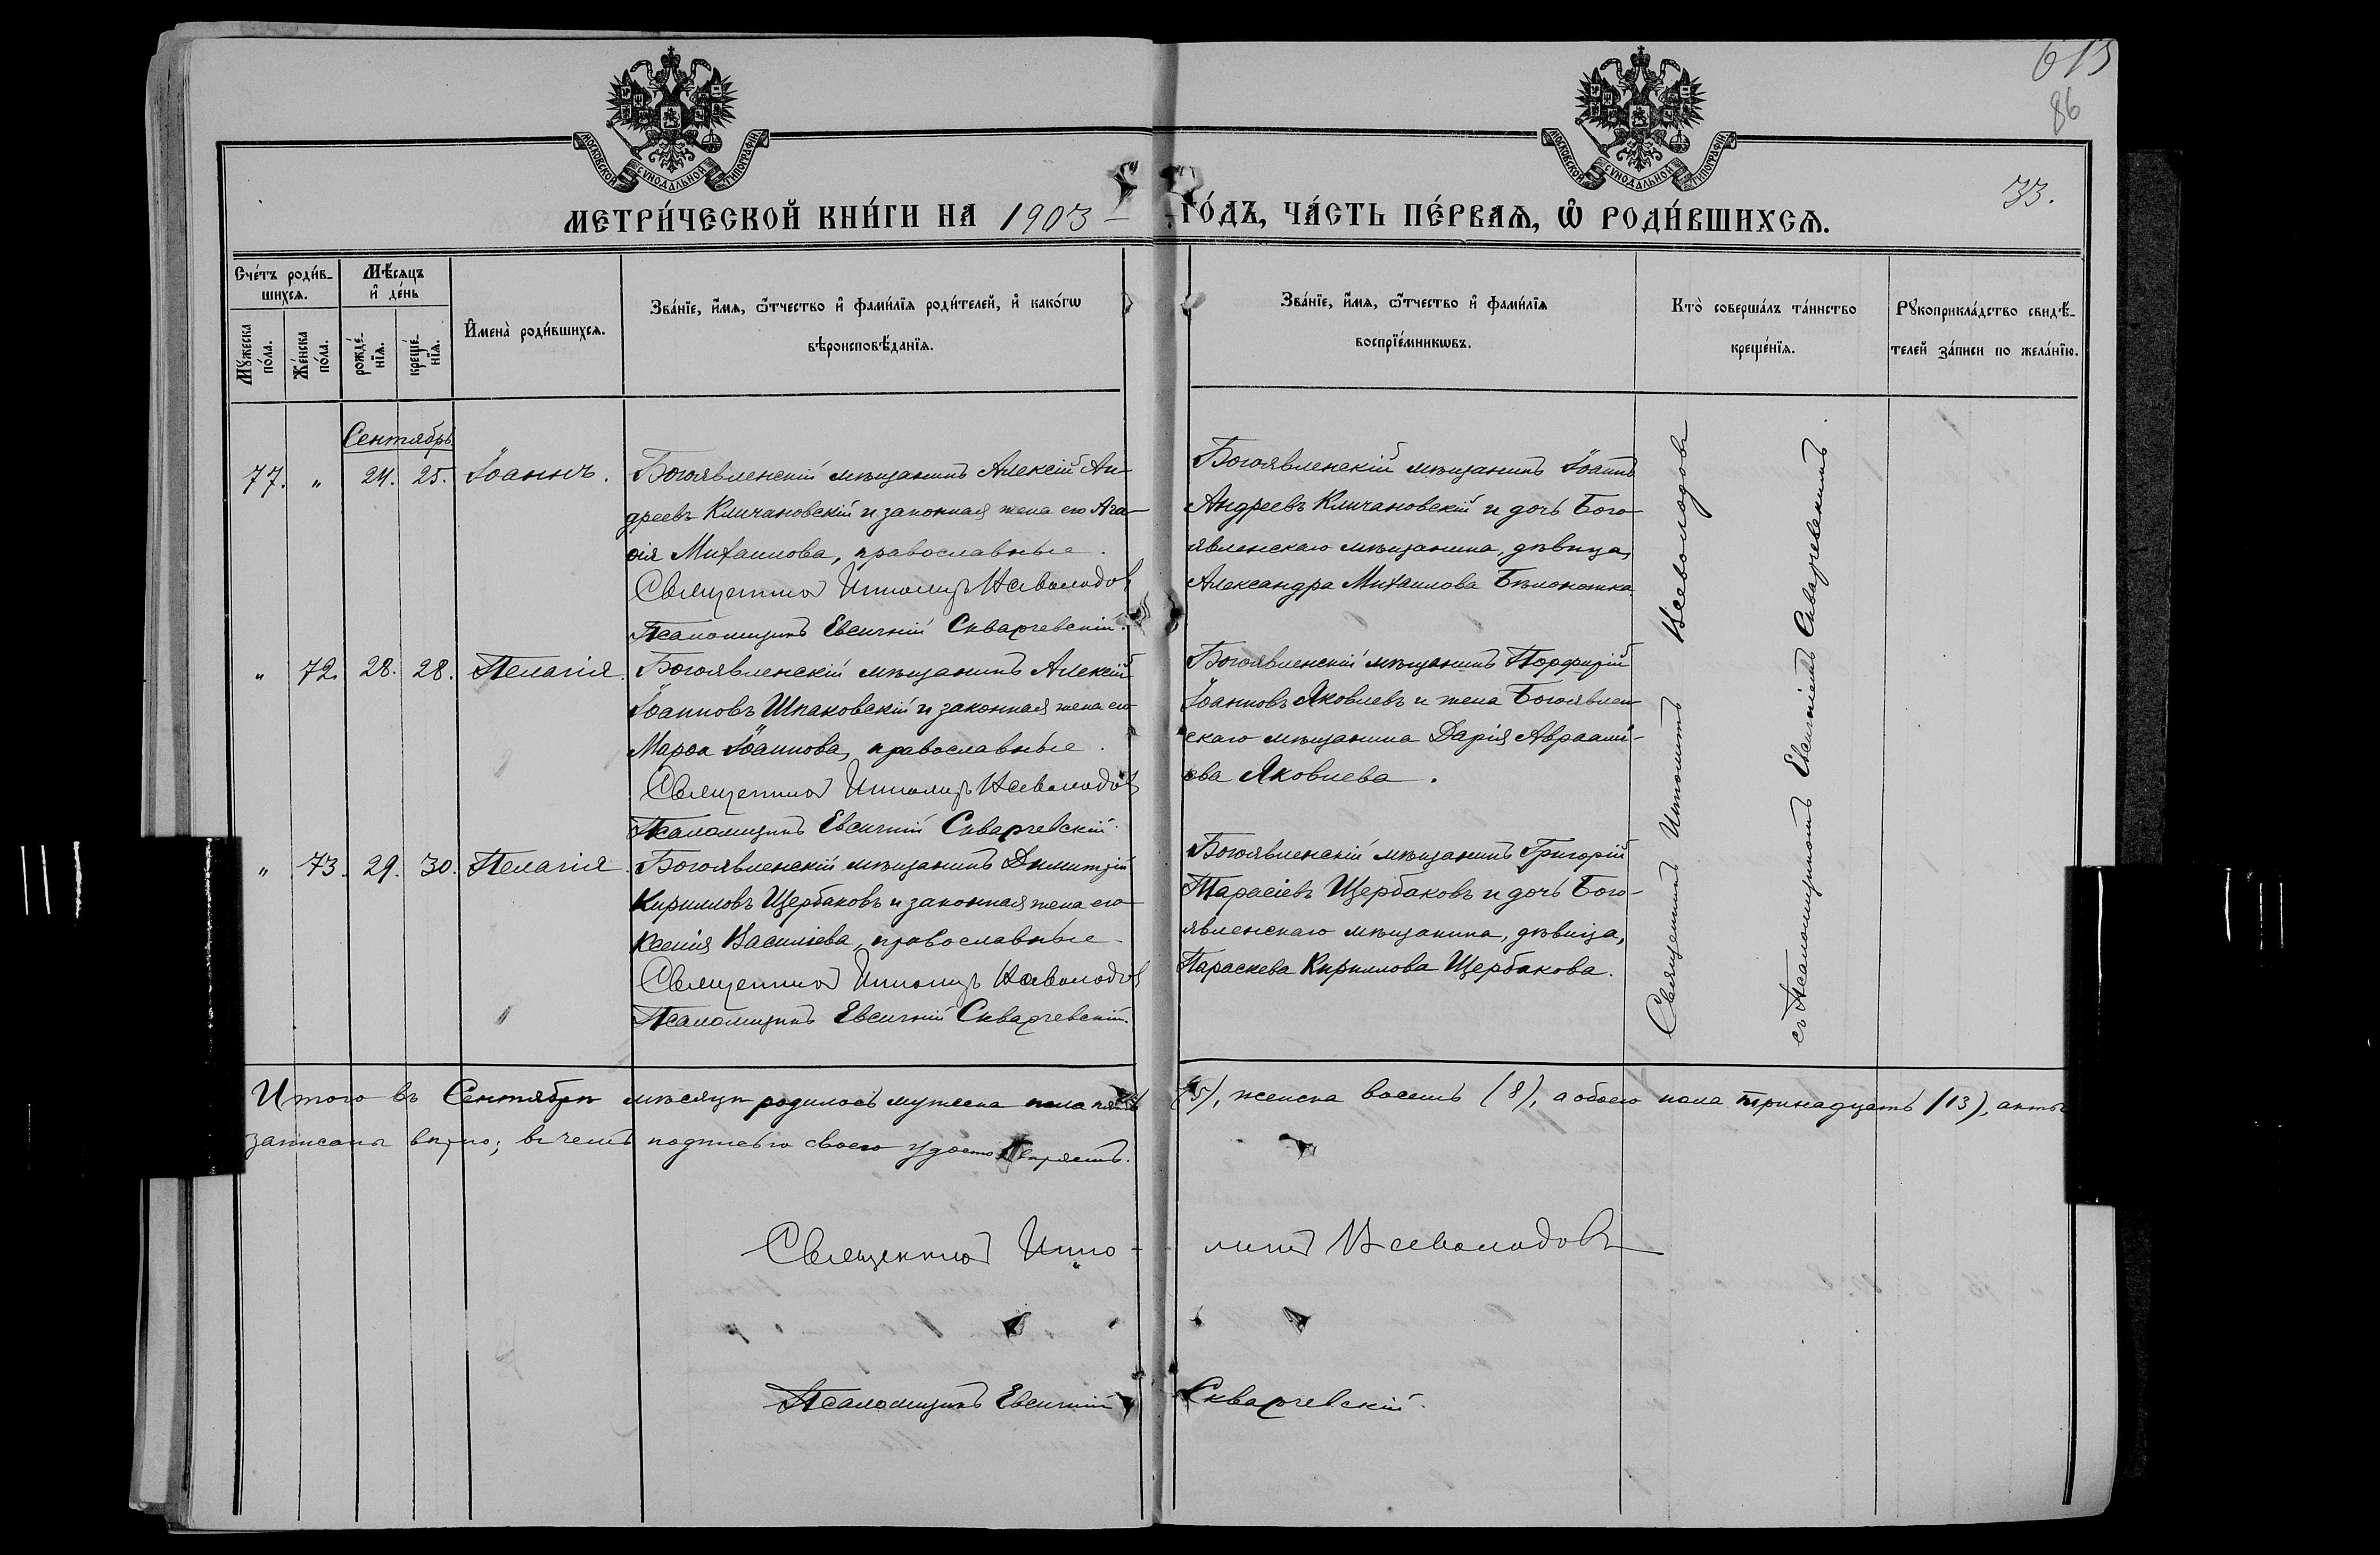 615
86
33.
МОСКОВСКОЙ СѴНОДАЛЬНОЙ ТИПОГРАФІИ
МОСКОВСКОЙ СѴНОДАЛЬНОЙ ТИПОГРАФІИ
МЕТРИ́ЧЕСКОЙ КНИ́ГИ НА 1903 ГО́ДЪ, ЧА́СТЬ ПЕ́РВАѦ, Ѡ҆ РОДИ́ВШИХСѦ.
Сче́тъ роди́в-
шихсѧ.
Мꙋ́жеска по́ла.
Же́нска по́ла.
Мѣ́сѧцъ
и҆ де́нь
рожде́-нїѧ.
креще́-нїѧ.
И҆мена̀ роди́вшихсѧ.
Зва́нїе, и҆́мѧ, ѻ҆́тчество и҆ фами́лїѧ роди́телей, и҆ како́гѡ
вѣроисповѣ́данїѧ.
Зва́нїе, и҆́мѧ, ѻ҆́тчество и҆ фами́лїѧ
воспрїе́мникѡвъ.
Кто̀ соверша́лъ та́инство
креще́нїѧ.
Рꙋкоприкла́дство свидѣ́-
телей за́писи по жела́нїю.
Сентябрь.
77. " 24. 25. Іоаннъ.
Богоявленскій мѣщанинъ Алексій Ан-
дреевъ Кличановскій и законная жена его Ага-
ѳія Михаилова, православные.
Священникъ Ипполитъ Всеволодовъ
Псаломщикъ Евсигній Скварчевскій.
Богоявленскій мѣщанинъ Іоаннъ
Андреевъ Кличановскій и дочь Бого-
явленскаго мѣщанина, дѣвица,
Александра Михаилова Бѣлоножка.
" 72. 28. 28. Пелагія.
Богоявленскій мѣщанинъ Алексій
Іоанновъ Шпаковскій и законная жена его
Марѳа Іоаннова, православные.
Священникъ Ипполитъ Всеволодовъ
Псаломщикъ Евсигній Скварчевскій.
Богоявленскій мѣщанинъ Порфирій
Іоанновъ Яковлевъ и жена Богоявлен-
скаго мѣщанина Дарія Авраамі-
ева Яковлева.
" 73. 29. 30. Пелагія.
Богоявленскій мѣщанинъ Димитрій
Кирилловъ Щербаковъ и законная жена его
Ксенія Василіева, православные.
Священникъ Ипполитъ Всеволодовъ
Псаломщикъ Евсигній Скварчевскій.
Богоявленскій мѣщанинъ Григорій
Тарасіевъ Щербаковъ и дочь Бого-
явленскаго мѣщанина, дѣвица,
Параскева Кириллова Щербакова.
Священникъ Ипполитъ Всеволодовъ
съ Псаломщикомъ Евсигніемъ Скварчевскимъ.
Итого въ Сентябрѣ мѣсяцѣ родилось мужеска пола пять (5), женска восемь (8), а обоего пола тринадцать (13), акты
записаны вѣрно; въ чемъ подписью своею удостовѣряемъ.
Священникъ Иппо-литъ Всеволодовъ
Псаломщикъ Евсигній Скварчевскій.